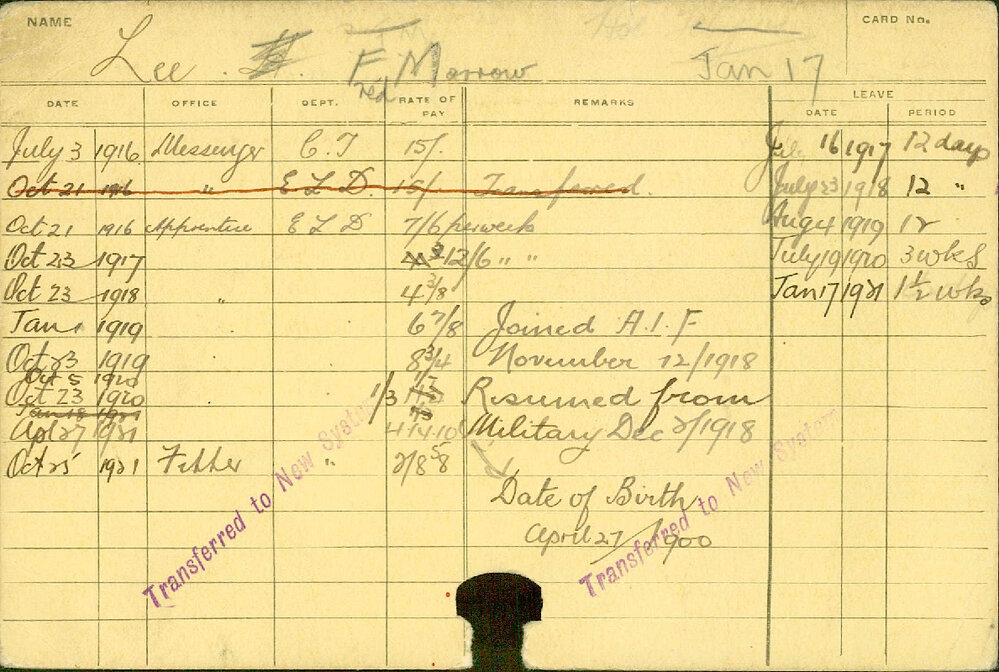 NAME
CARD No.
Lee. F. Morrow
red
Jan 17
DATE OFFICE DEPT. RATE OF PAY REMARKS LEAVE
DATE PERIOD
July 3 1916 Messenger C.T 15/. July 16 1917 12 days
Oct 21 1916 " E L D. 15/- Transferred. July 23 1918 12 "
Oct 21 1916 Apprentice E L D 7/6 perweek Aug 4 1919 12
Oct 23 1917 12/6 " " July 19 1920 3 wks
Oct 23 1918 " 4 3/8 Jan 17 1921 1½ wks
Jan 1 1919 6 7/8 Joined A.I.F
Oct 23 1919 8 3/4 November 12/1918
Oct 5 1920
Oct 23 1920 1/3 Resumed from
Jan 18 1921
Apl 27 1921 4.14.10 Military Dec 2/1918
Oct 25 1921 Fitter " 2/8
Date of Birth
April 27/1900
Transferred to New System
Transferred to New System